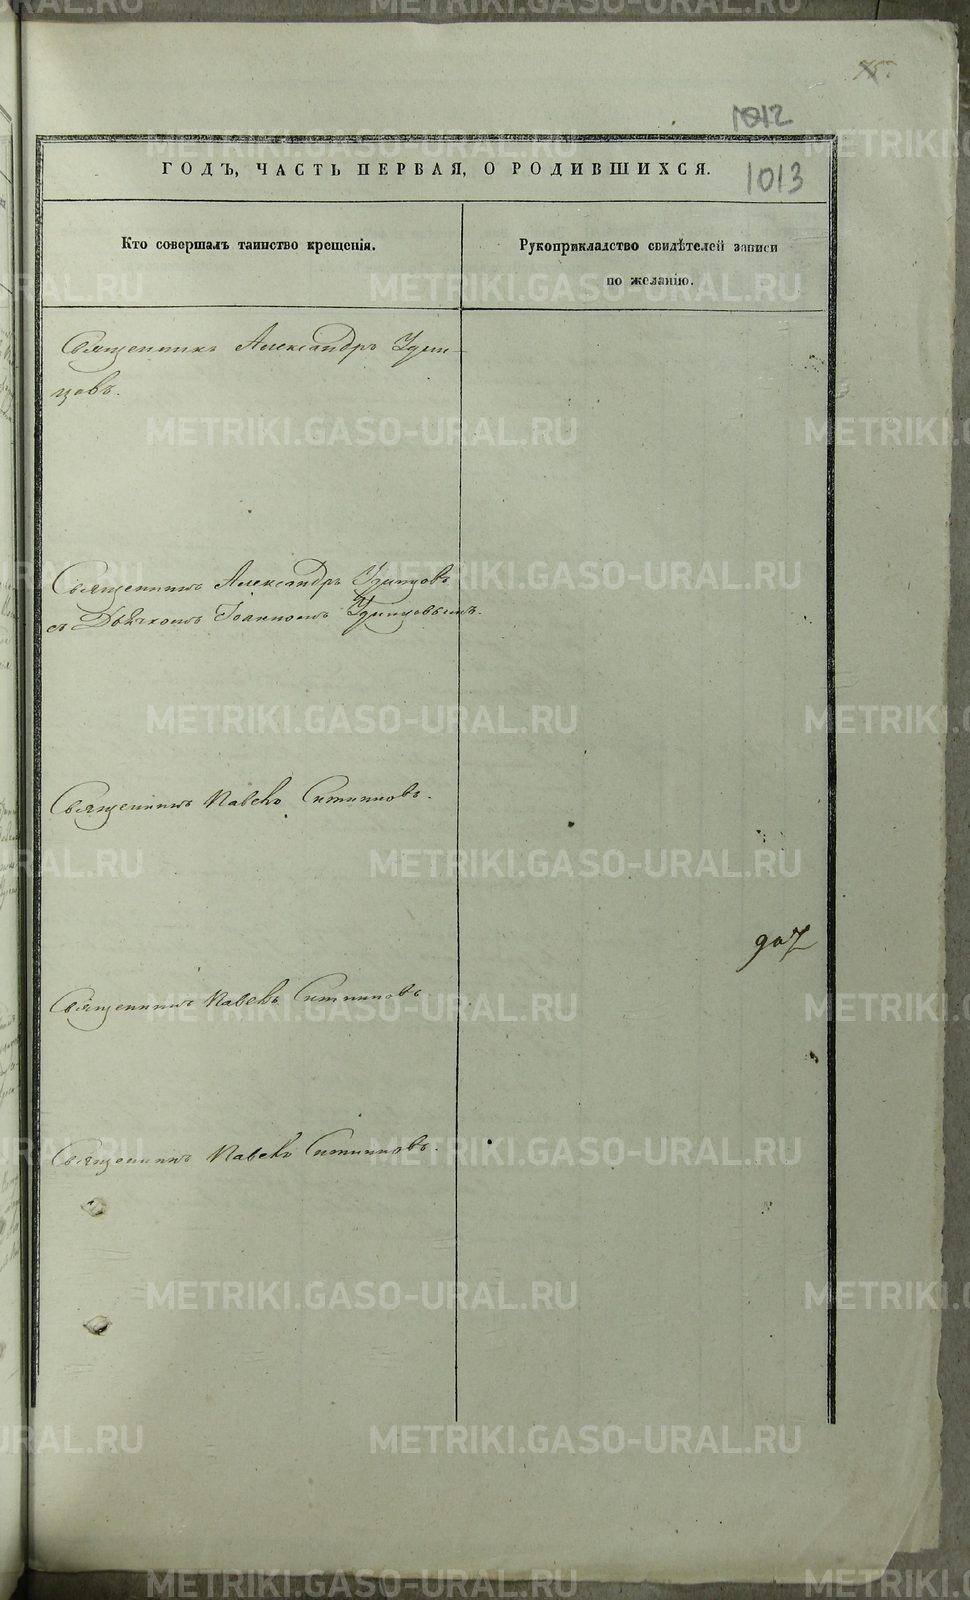 1012
ГОДЪ, ЧАСТЬ ПЕРВАЯ, О РОДИВШИХСЯ.
1013
Кто совершалъ таинство крещенія.
Рукоприкладство свидѣтелей записи
по желанію.
Священникъ Александръ Удин-
цовъ.
Священникъ Александръ Удинцовъ
съ Дьячкомъ Іоанномъ Удинцовымъ.
Священникъ Павелъ Ситниковъ.
Священникъ Павелъ Ситниковъ
Священникъ Павелъ Ситниковъ.
METRIKI.GASO-URAL.RU